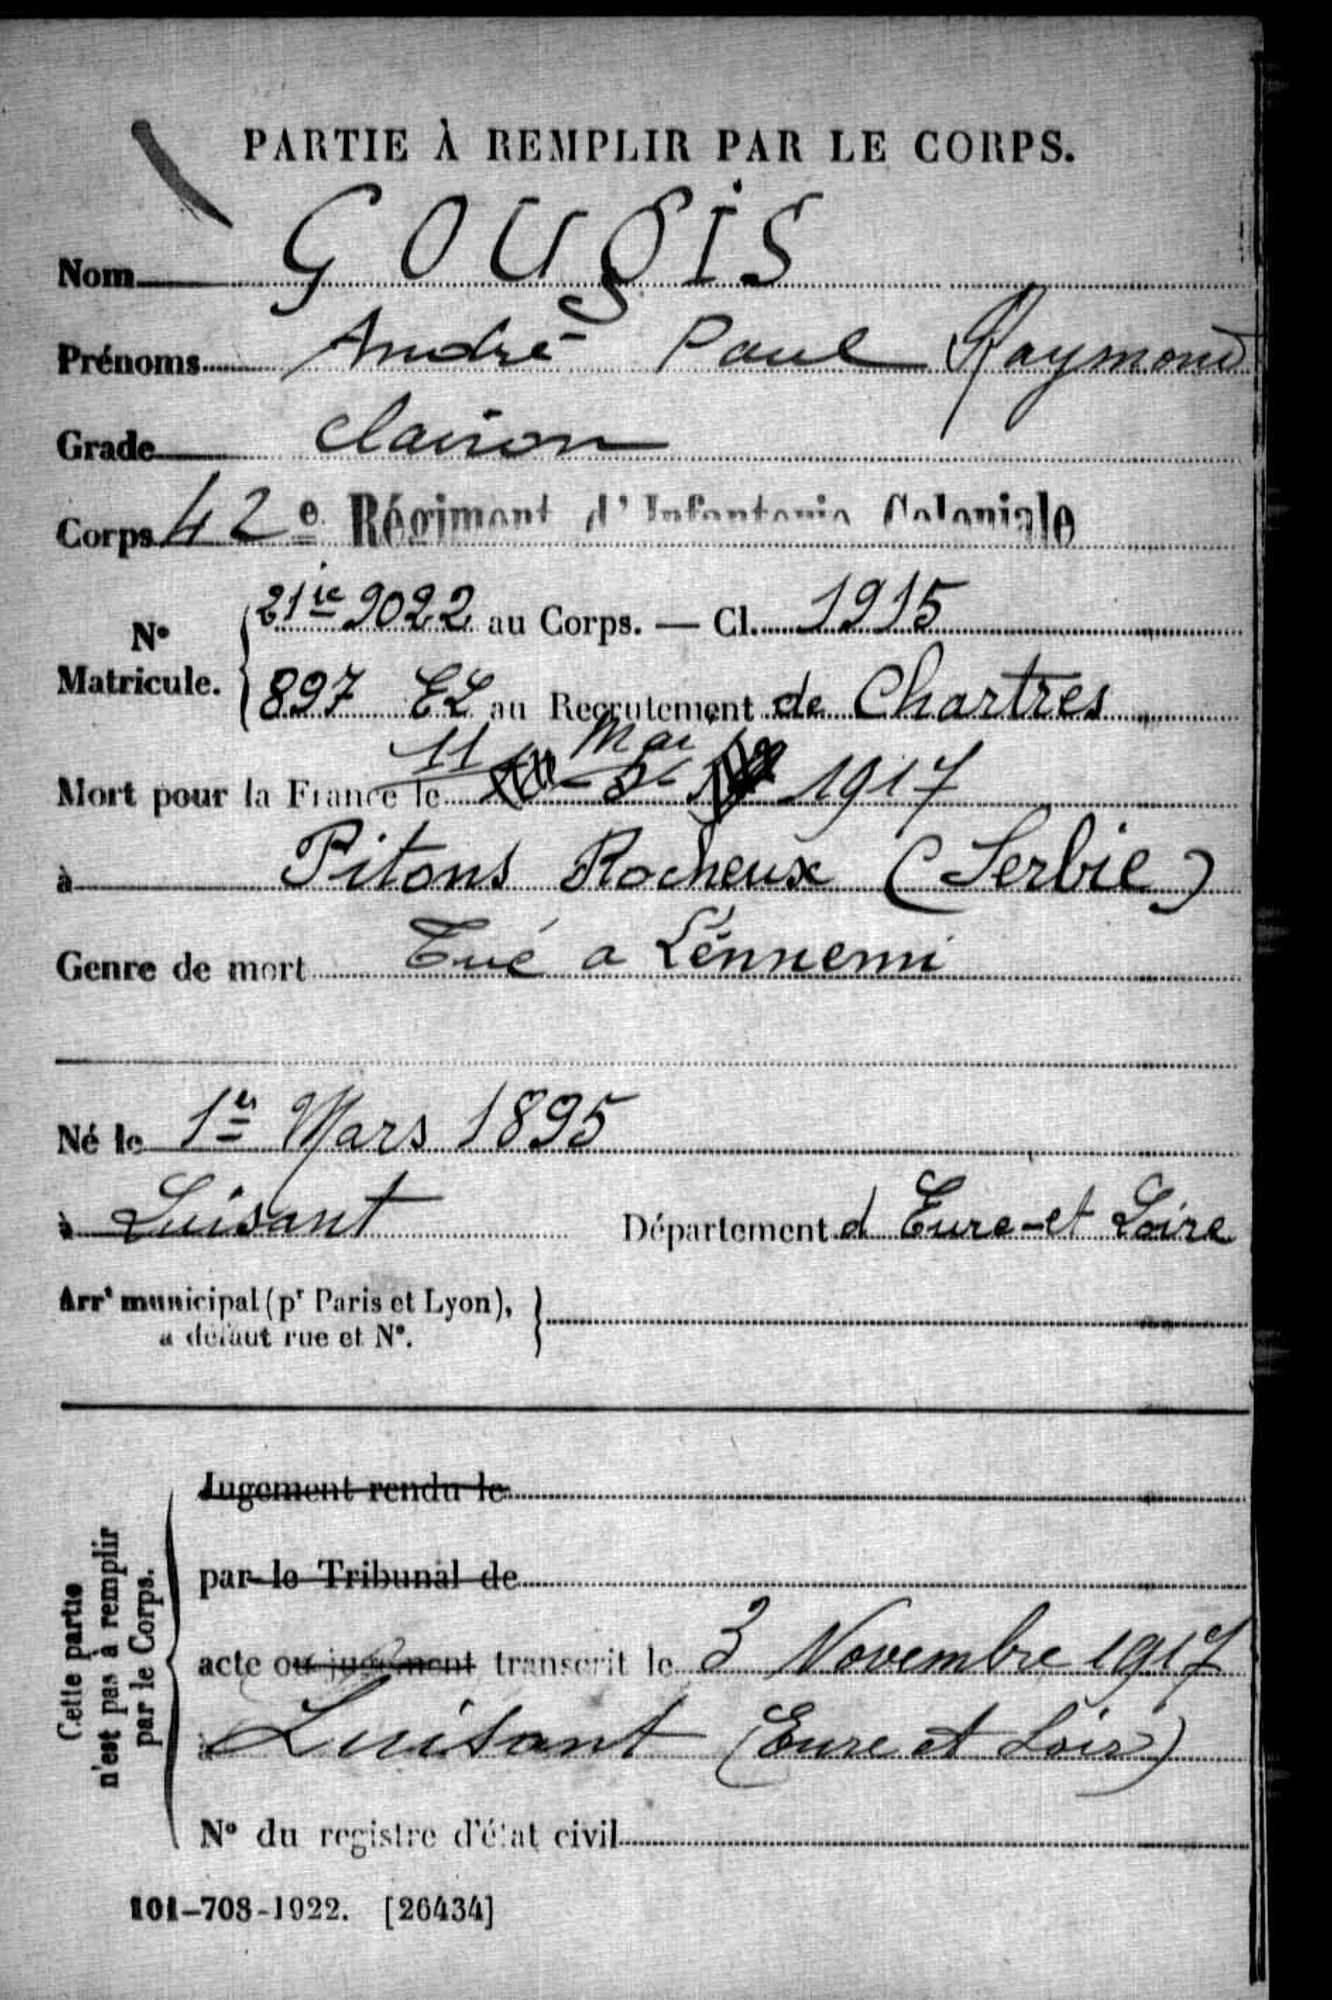 PARTIE À REMPLIR PAR LE CORPS.
Nom GOUGIS
Prénoms André Paul Raymond
Grade clairon
Corps 42e Régiment d'Infanterie Coloniale
N° Matricule. 21ie 9022 au Corps. — Cl. 1915
897 EL au Recrutement de Chartres
11 Mai
Mort pour la France le 1917
à Pitons Rocheux (Serbie)
Genre de mort Tué a L'énnemi
Né le 1er Mars 1895
à Luisant Département d Eure-et Loire
Arrt municipal (pr Paris et Lyon), à défaut rue et N°.
Cette partie n'est pas à remplir par le Corps.
Jugement rendu le
par le Tribunal de
acte ou jugement transcrit le 3 Novembre 1917
à Luisant (Eure et Loir)
N° du registre d'état civil
101-708-1922. [26434]